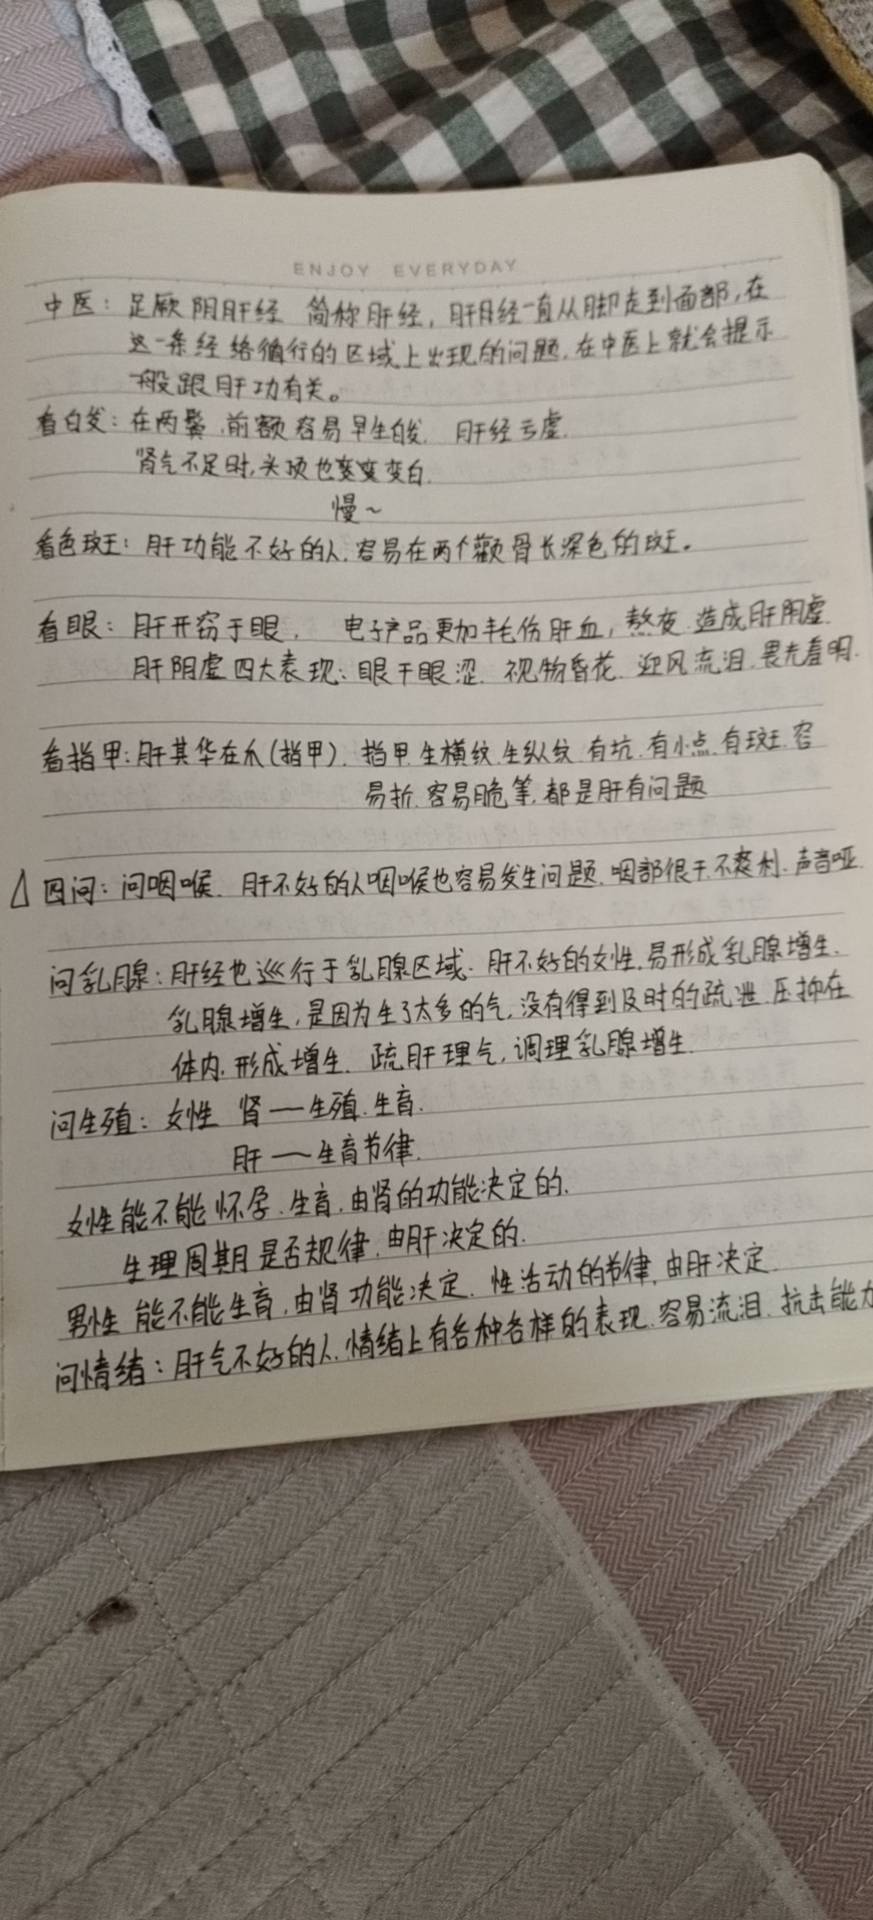 ENJOY EVERYDAY
中医：足厥阴肝经 简称肝经，肝经一直从脚走到面部，在
这一条经络循行的区域上出现的问题，在中医上就会提示
一般跟肝功有关。
看白发：在两鬓，前额容易早生白发。肝经亏虚。
肾气不足时，头顶也会变白。
慢~
看色斑：肝功能不好的人，容易在两个颧骨长深色的斑。
看眼：肝开窍于眼， 电子产品更加耗伤肝血，熬夜 造成肝阴虚
肝阴虚四大表现：眼干眼涩、视物昏花、迎风流泪、畏光羞明
看指甲：肝其华在爪（指甲）. 指甲生横纹.生纵纹.有坑.有小点.有斑.容
易折.容易脆等.都是肝有问题
△ 四问：问咽喉、肝不好的人咽喉也容易发生问题、咽部很干.不爽利.声音哑
问乳腺：肝经也巡行于乳腺区域. 肝不好的女性.易形成乳腺增生.
乳腺增生，是因为生了太多的气，没有得到及时的疏泄 压抑在
体内.形成增生. 疏肝理气，调理乳腺增生.
问生殖：女性 肾一生殖.生育.
肝一生育节律.
女性能不能怀孕.生育.由肾的功能决定的.
生理周期是否规律.由肝决定的.
男性 能不能生育.由肾功能决定. 性活动的节律.由肝决定.
问情绪：肝气不好的人.情绪上有各种各样的表现.容易流泪. 抗击能力